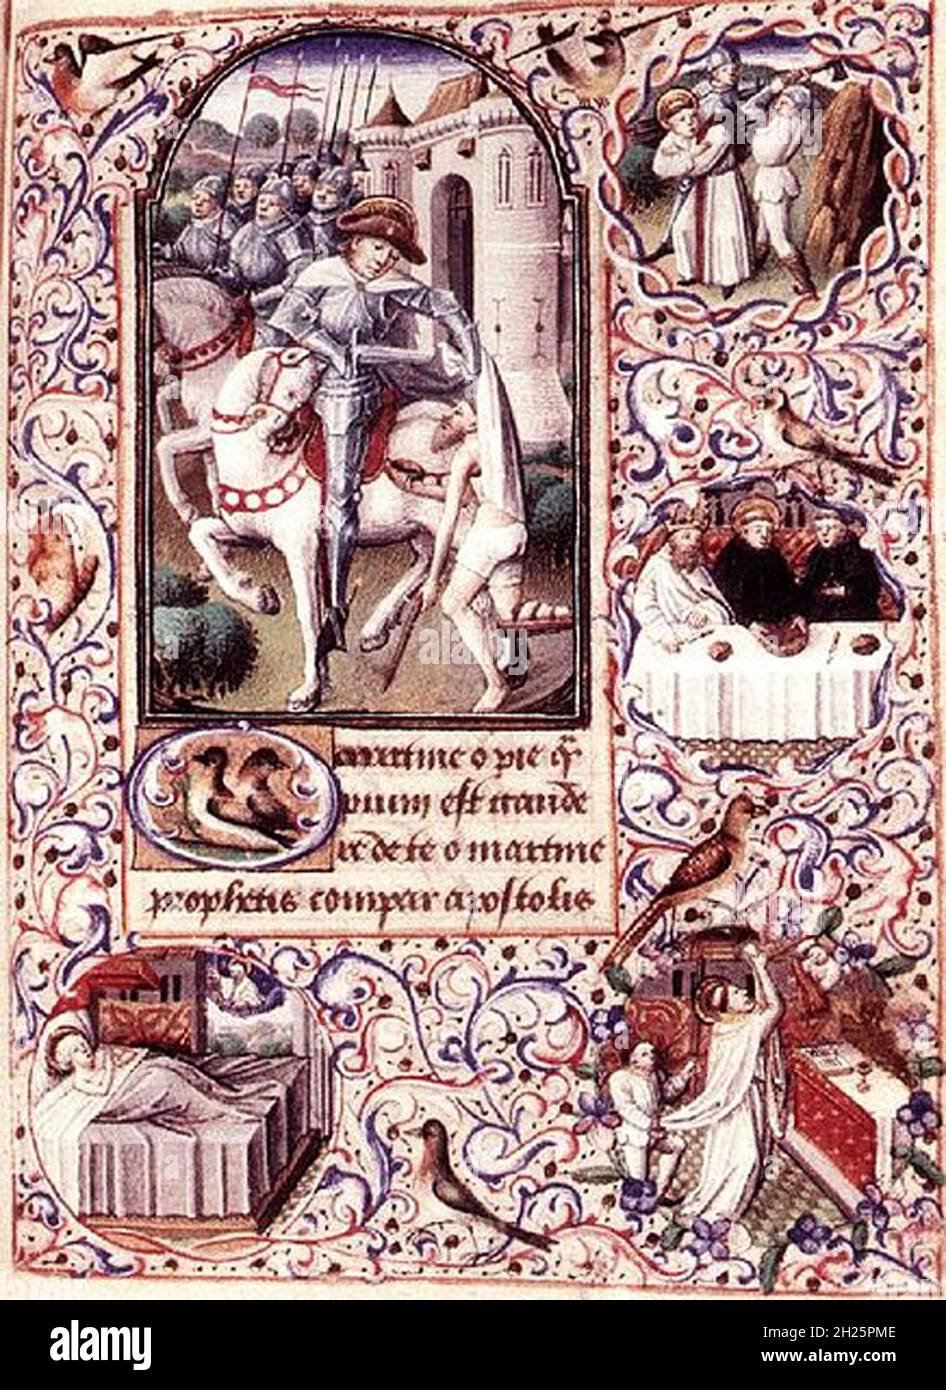 O martine o pie q̃
pium est gaude
re de te o martine
prophetis compar apostolis
alamy
Image ID: H25PME
www.alamy.com